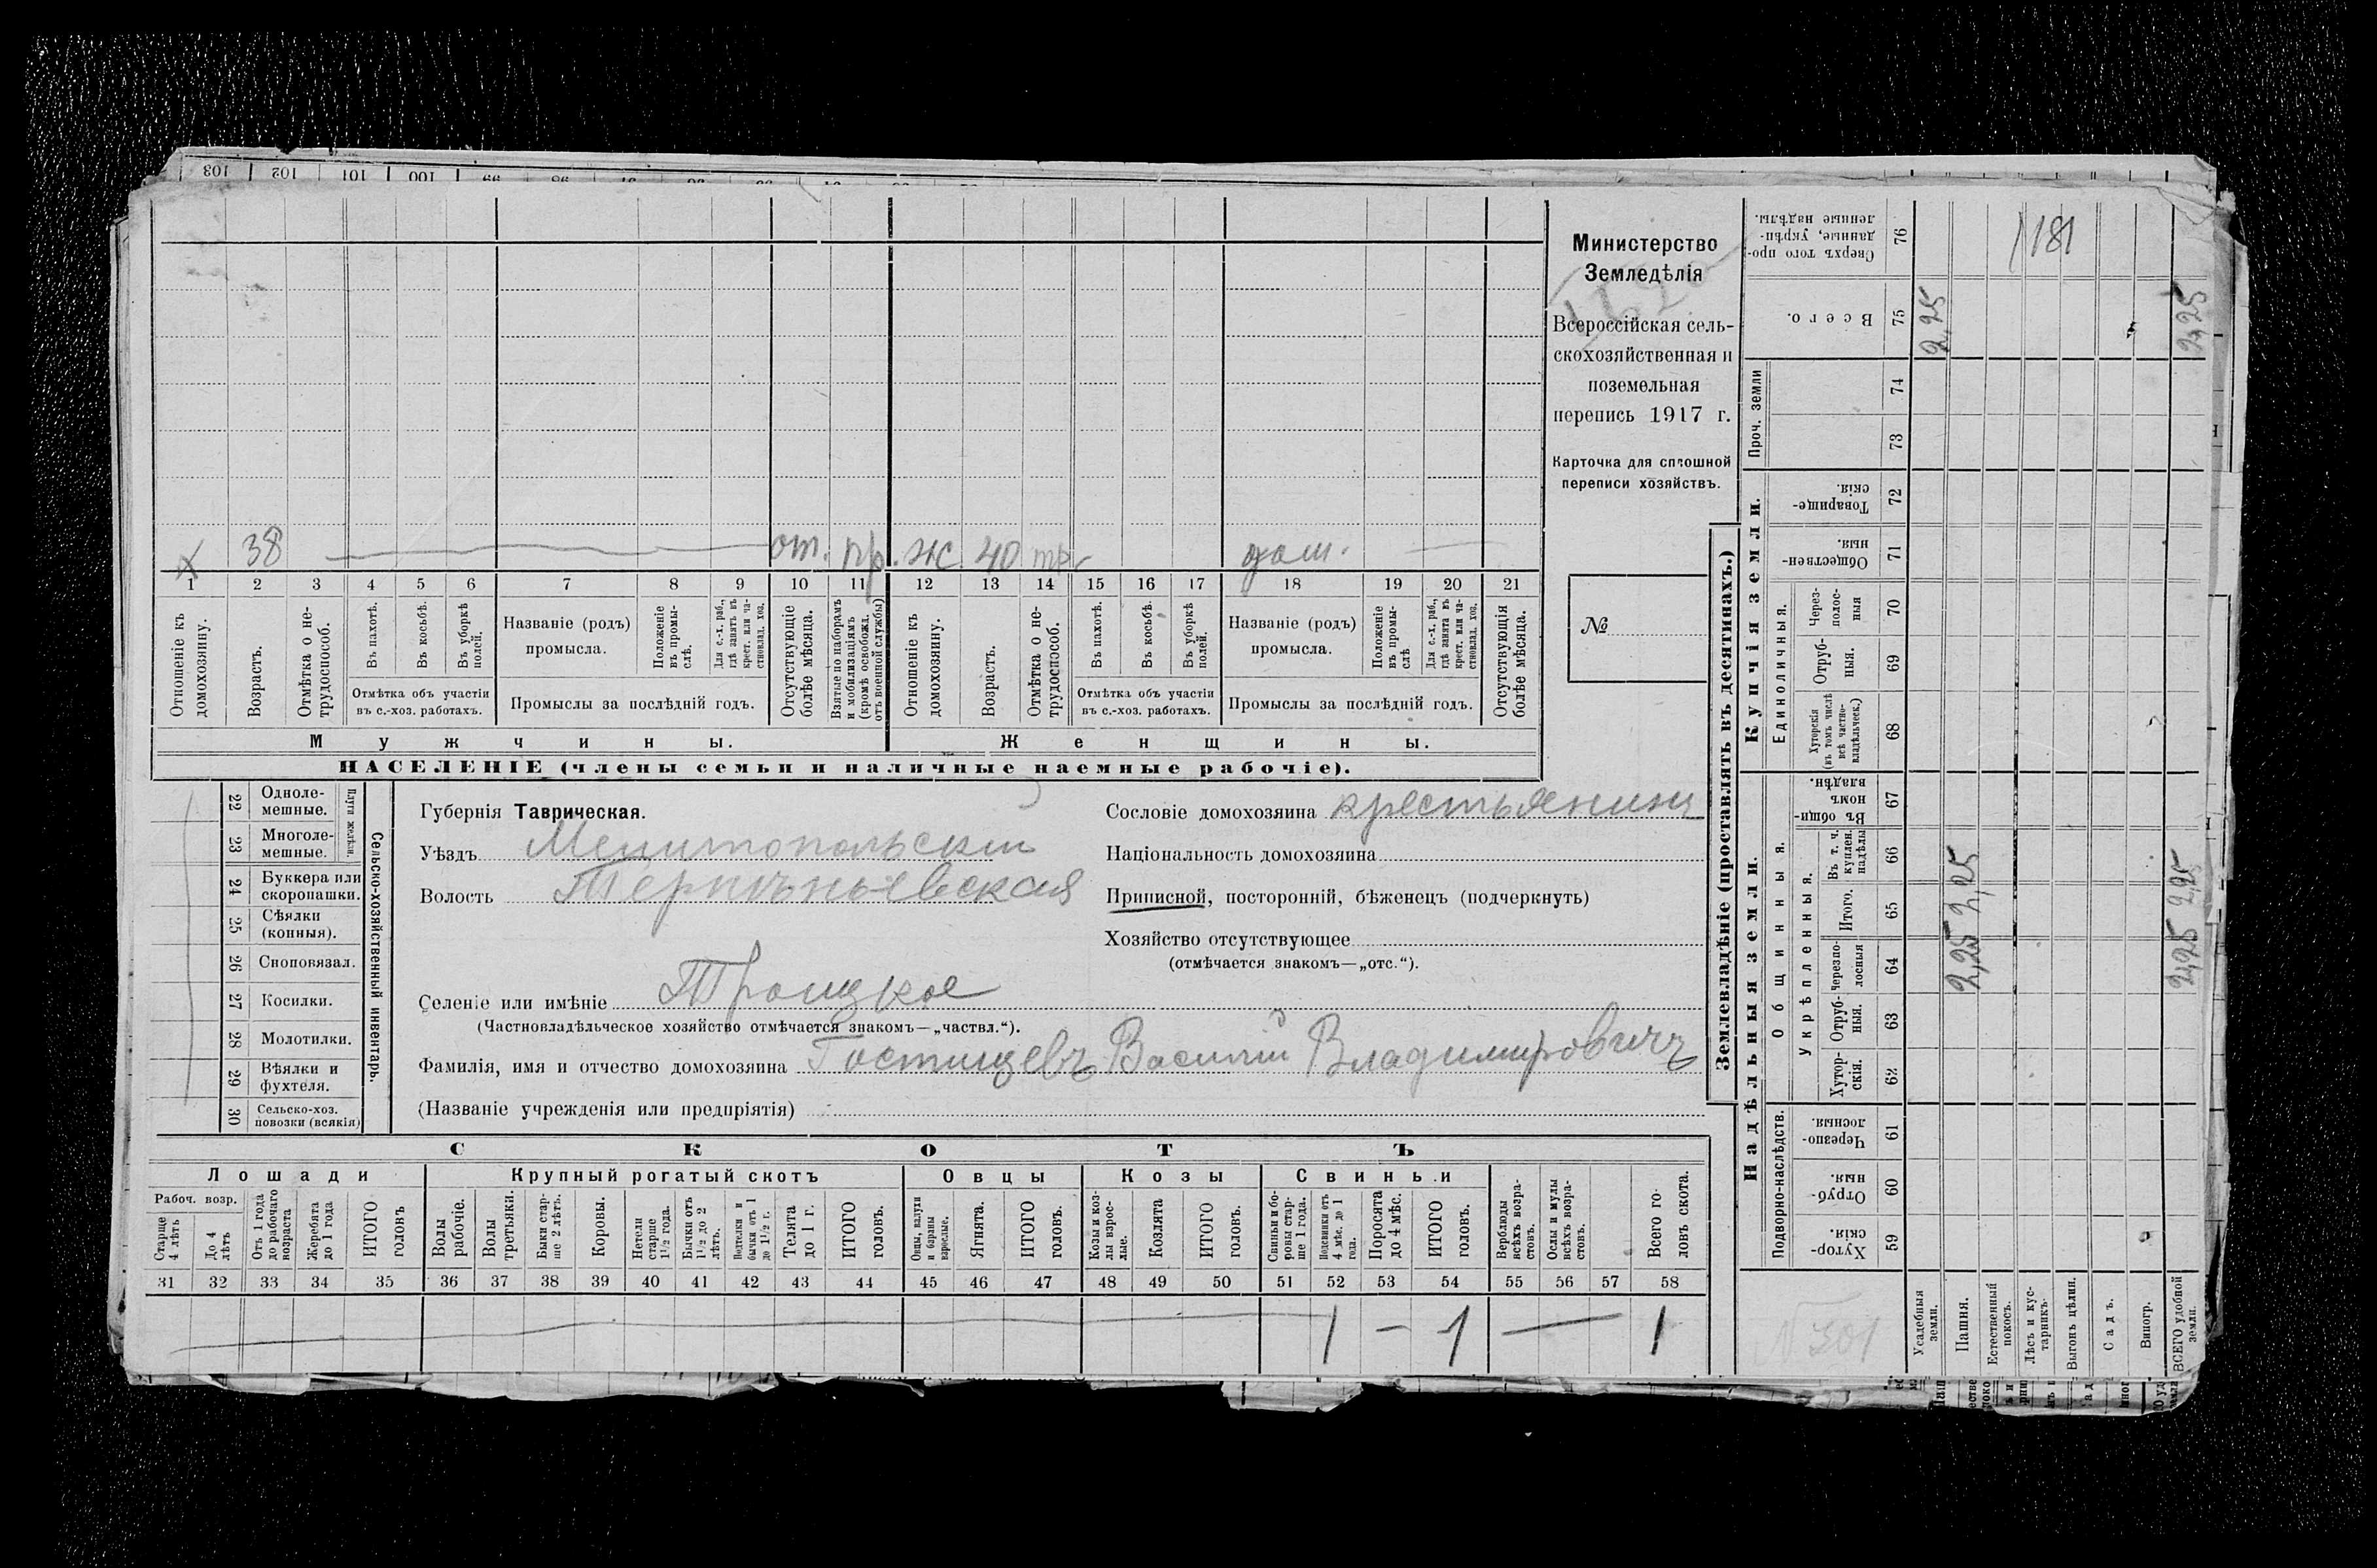 103 102 101 100
Министерство
Земледѣлія
Всероссійская сель-
скохозяйственная и
поземельная
перепись 1917 г.
Карточка для сплошной
переписи хозяйствъ.
№
х 38 — от. пр. ж. 40 дом. —
1 2 3 4 5 6 7 8 9 10 11 12 13 14 15 16 17 18 19 20 21
Отношеніе къ домохозяину.
Возрастъ.
Отмѣтка о не-
трудоспособ.
Въ пахотѣ.
Въ косьбѣ.
Въ уборкѣ
полей.
Отмѣтка объ участіи
въ с.-хоз. работахъ.
Названіе (родъ)
промысла.
Положеніе
въ промы-
слѣ.
Для с.-х. раб.,
гдѣ занятъ въ
крест. или ча-
стновлад. хоз.
Промыслы за послѣдній годъ.
Отсутствующіе
болѣе мѣсяца.
Взятые по наборамъ
и мобилизаціямъ
(кромѣ освобожд.
отъ военной службы)
Отношеніе къ
домохозяину.
Возрастъ.
Отмѣтка о не-
трудоспособ.
Въ пахотѣ.
Въ косьбѣ.
Въ уборкѣ
полей.
Отмѣтка объ участіи
въ с.-хоз. работахъ.
Названіе (родъ)
промысла.
Положеніе
въ промы-
слѣ
Для с.-х. раб.,
гдѣ занята въ
крест. или ча-
стновлад. хоз.
Промыслы за послѣдній годъ.
Отсутствующія
болѣе мѣсяца.
Мужчины. Женщины.
НАСЕЛЕНІЕ (члены семьи и наличные наемные рабочіе).
22 Одноле-
мешные.
23 Многоле-
мешные.
Плуги желѣзн.
24 Буккера или
скоропашки.
25 Сѣялки
(конныя).
26 Сноповязал.
27 Косилки.
28 Молотилки.
29 Вѣялки и
фухтеля.
30 Сельско-хоз.
повозки (всякія)
Сельско-хозяйственный инвентарь.
Губернія Таврическая.
Уѣздъ Мелитопольскій
Волость Терпѣньевская
Селеніе или имѣніе Троицкое
(Частновладѣльческое хозяйство отмѣчается знакомъ—„частвл.“).
Фамилія, имя и отчество домохозяина Гостищевъ Василій Владимировичъ
(Названіе учрежденія или предпріятія)
Сословіе домохозяина крестьянинъ
Національность домохозяина
Приписной, посторонній, бѣженецъ (подчеркнуть)
Хозяйство отсутствующее
(отмѣчается знакомъ—„отс.“).
СКОТЪ
Лошади Крупный рогатый скотъ Овцы Козы Свиньи
Рабоч. возр.
Старше
4 лѣтъ
До 4
лѣтъ
Отъ 1 года
до рабочаго
возраста
Жеребята
до 1 года
ИТОГО
головъ
Волы
рабочіе.
Волы
третьяки.
Быки стар-
ше 2 лѣтъ.
Коровы.
Нетели
старше
1 1/2 года.
Бычки отъ
1 1/2 до 2
лѣтъ.
Подтелки и
бычки отъ 1
до 1 1/2 г.
Телята
до 1 г.
ИТОГО
головъ.
Овцы, валухи
и бараны
взрослые.
Ягнята.
ИТОГО
головъ.
Козы и коз-
лы взрос-
лые.
Козлята
ИТОГО
головъ.
Свиньи и бо-
ровы стар-
ше 1 года.
Подсвинки отъ
4 мѣс. до 1
года.
Поросята
до 4 мѣс.
ИТОГО
головъ.
Верблюды
всѣхъ возра-
стовъ.
Ослы и мулы
всѣхъ возра-
стовъ.
Всего го-
ловъ скота.
31 32 33 34 35 36 37 38 39 40 41 42 43 44 45 46 47 48 49 50 51 52 53 54 55 56 57 58
1 — 1 — 1
Землевладѣніе (проставлять въ десятинахъ.)
Надѣльныя земли. Купчія земли. Проч. земли
Подворно-наслѣдств.
Общинныя.
Укрѣпленныя.
Единоличныя.
Хутор-
скія. 59
Отруб-
ныя. 60
Черезпо-
лосныя. 61
Хутор-
скія. 62
Отруб-
ныя. 63
Черезпо-
лосныя 64
Итого. 65
Въ т. ч.
куплен.
надѣлы 66
Въ общи-
номъ
владѣн. 67
Хуторскія
(въ томъ числѣ
всѣ частно-
владѣльческ.) 68
Отруб-
ныя. 69
Через-
полос-
ныя 70
Обществен-
ныя. 71
Товарище-
скія. 72
73
74
Всего. 75
Сверхъ того про-
данные, укрѣп-
ленные надѣлы. 76
Усадебныя
земли.
2,25
Пашня.
2,25 2,25
Естественный
покосъ.
Лѣсъ и кус-
тарникъ.
Выгонъ цѣлин.
Садъ.
Виногр.
ВСЕГО удобной
земли.
2,25 2,25 2,25
181
№ 301